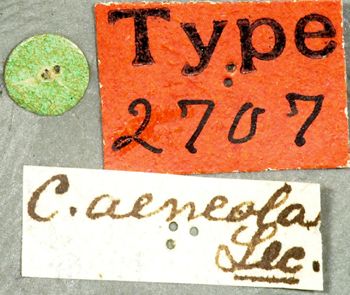 Type
2707
C. aeneola
Lec.